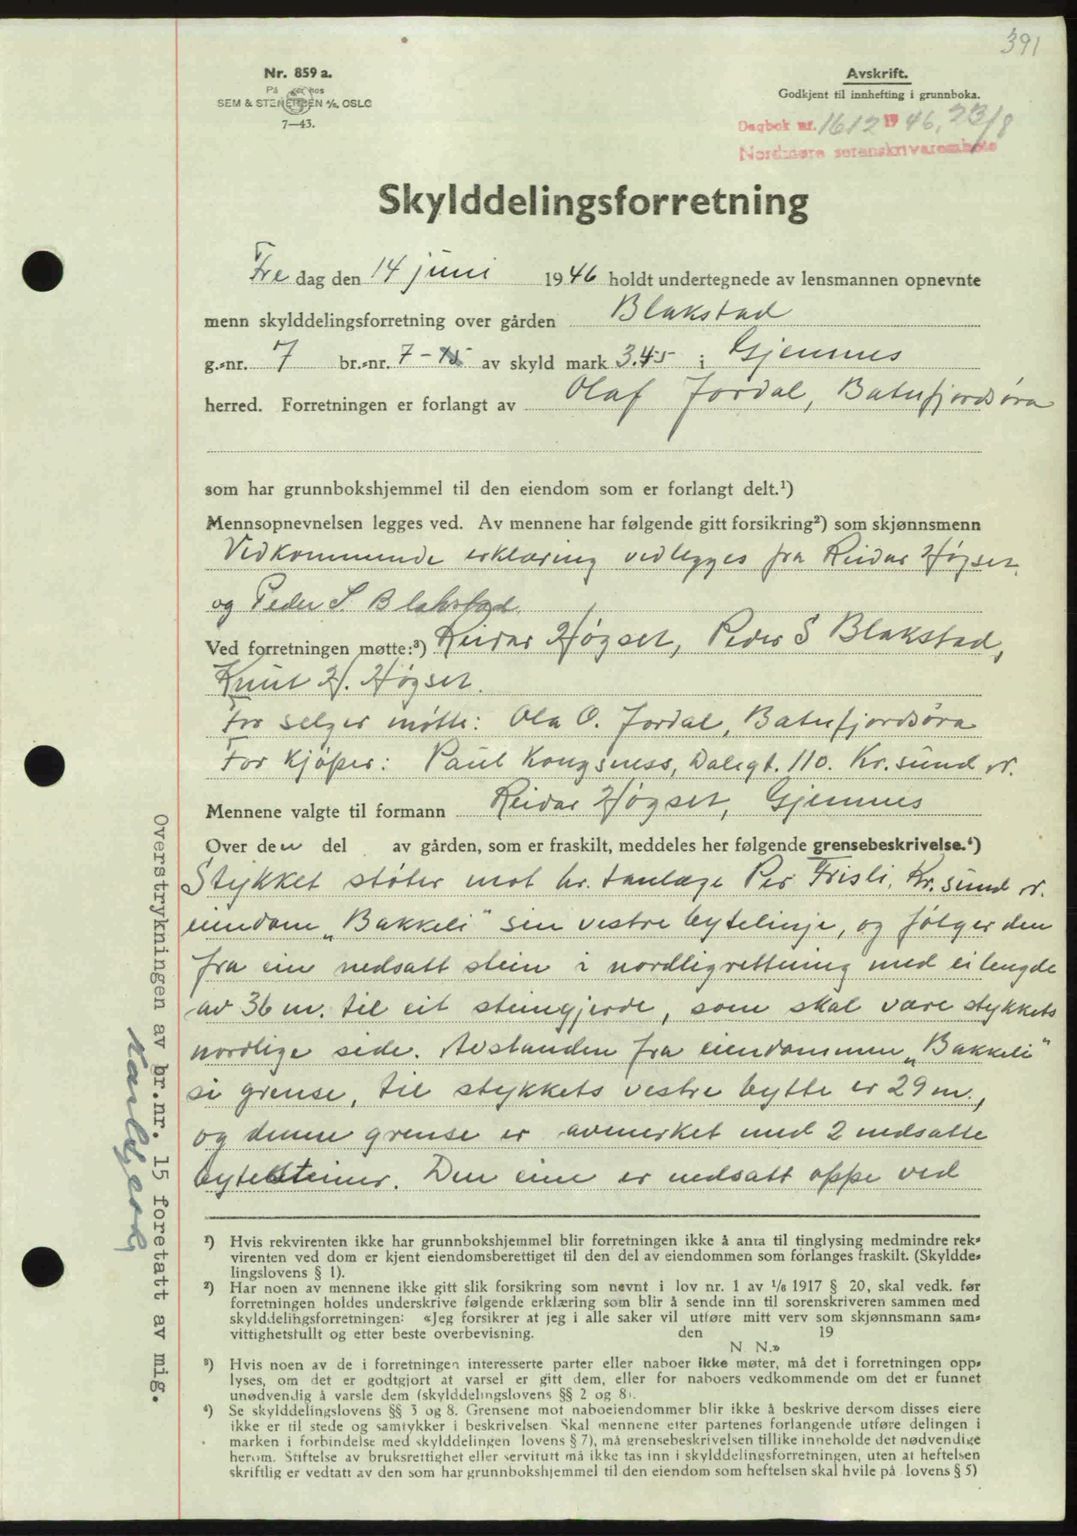 391
Nr. 859 a.
På lager hos
SEM & STENERSEN A/S, OSLO
7—43.
Avskrift.
Godkjent til innhefting i grunnboka.
Dagbok nr. 1612 19 46, 23/8
Nordmøre sorenskrivarembete
Skylddelingsforretning
Fre dag den 14 juni 1946 holdt undertegnede av lensmannen opnevnte
menn skylddelingsforretning over gården Blakstad
g.-nr. 7 br.-nr. 7 - 15 av skyld mark 3.45 i Gjemnes
herred. Forretningen er forlangt av Olaf Jordal, Batnfjordsøra
som har grunnbokshjemmel til den eiendom som er forlangt delt.¹)
Mennsopnevnelsen legges ved. Av mennene har følgende gitt forsikring²) som skjønnsmenn
Vedkommende erklæring vedlegges fra Reidar Høgset
og Peder S. Blakstad.
Ved forretningen møtte:³) Reidar Høgset, Peder S Blakstad,
Knut H. Høgset.
For selger møtte: Ola O. Jordal, Batnfjordsøra
For kjøper: Paul Kongsness, Dalegt. 110. Kr.sund N.
Mennene valgte til formann Reidar Høgset, Gjemnes
Over den del av gården, som er fraskilt, meddeles her følgende grensebeskrivelse.⁴)
Stykket støter mot hr. tanlæge Per Frisli, Kr.sund N.
eiendom „Bakkeli" sin vestre bytelinje, og følger den
fra ein nedsatt stein i nordligrettning med ei lengde
av 36 m. til eit steingjerde, som skal være stykkets
nordlige side. Avstanden fra eiendommen „Bakkeli"
si grense, til stykkets vestre bytte er 29 m.,
og denne grense er avmerket med 2 nedsatte
bytesteiner. Den eine er nedsatt oppe ved
¹) Hvis rekvirenten ikke har grunnbokshjemmel blir forretningen ikke å anta til tinglysing medmindre rek-
virenten ved dom er kjent eiendomsberettiget til den del av eiendommen som forlanges fraskilt. (Skyldde-
lingslovens § 1).
²) Har noen av mennene ikke gitt slik forsikring som nevnt i lov nr. 1 av 1/6 1917 § 20, skal vedk. før
forretningen holdes underskrive følgende erklæring som blir å sende inn til sorenskriveren sammen med
skylddelingsforretningen: «Jeg forsikrer at jeg i alle saker vil utføre mitt verv som skjønnsmann sam-
vittighetsfullt og etter beste overbevisning. den 19
N N.»
³) Hvis noen av de i forretningen interesserte parter eller naboer ikke møter, må det i forretningen opp-
lyses, om det er godtgjort at varsel er gitt dem, eller for naboers vedkommende om det er funnet
unødvendig å varsle dem (skylddelingslovens §§ 2 og 8).
⁴) Se skylddelingslovens §§ 3 og 8. Grensene mot naboeiendommer blir ikke å beskrive dersom disses eiere
ikke er til stede og samtykker i beskrivelsen. Skal mennene etter partenes forlangende utføre delingen i
marken i forbindelse med skylddelingen (lovens § 7), må grensebeskrivelsen tillike inneholde det nødvendige
herom. Stiftelse av bruksrettighet eller servitutt må ikke tas inn i skylddelingsforretningen, uten at heftelsen
skriftlig er vedtatt av den som har grunnbokshjemmel til den eiendom som heftelsen skal hvile på (lovens § 5)
Overstrykningen av br.nr. 15 foretatt av mig.